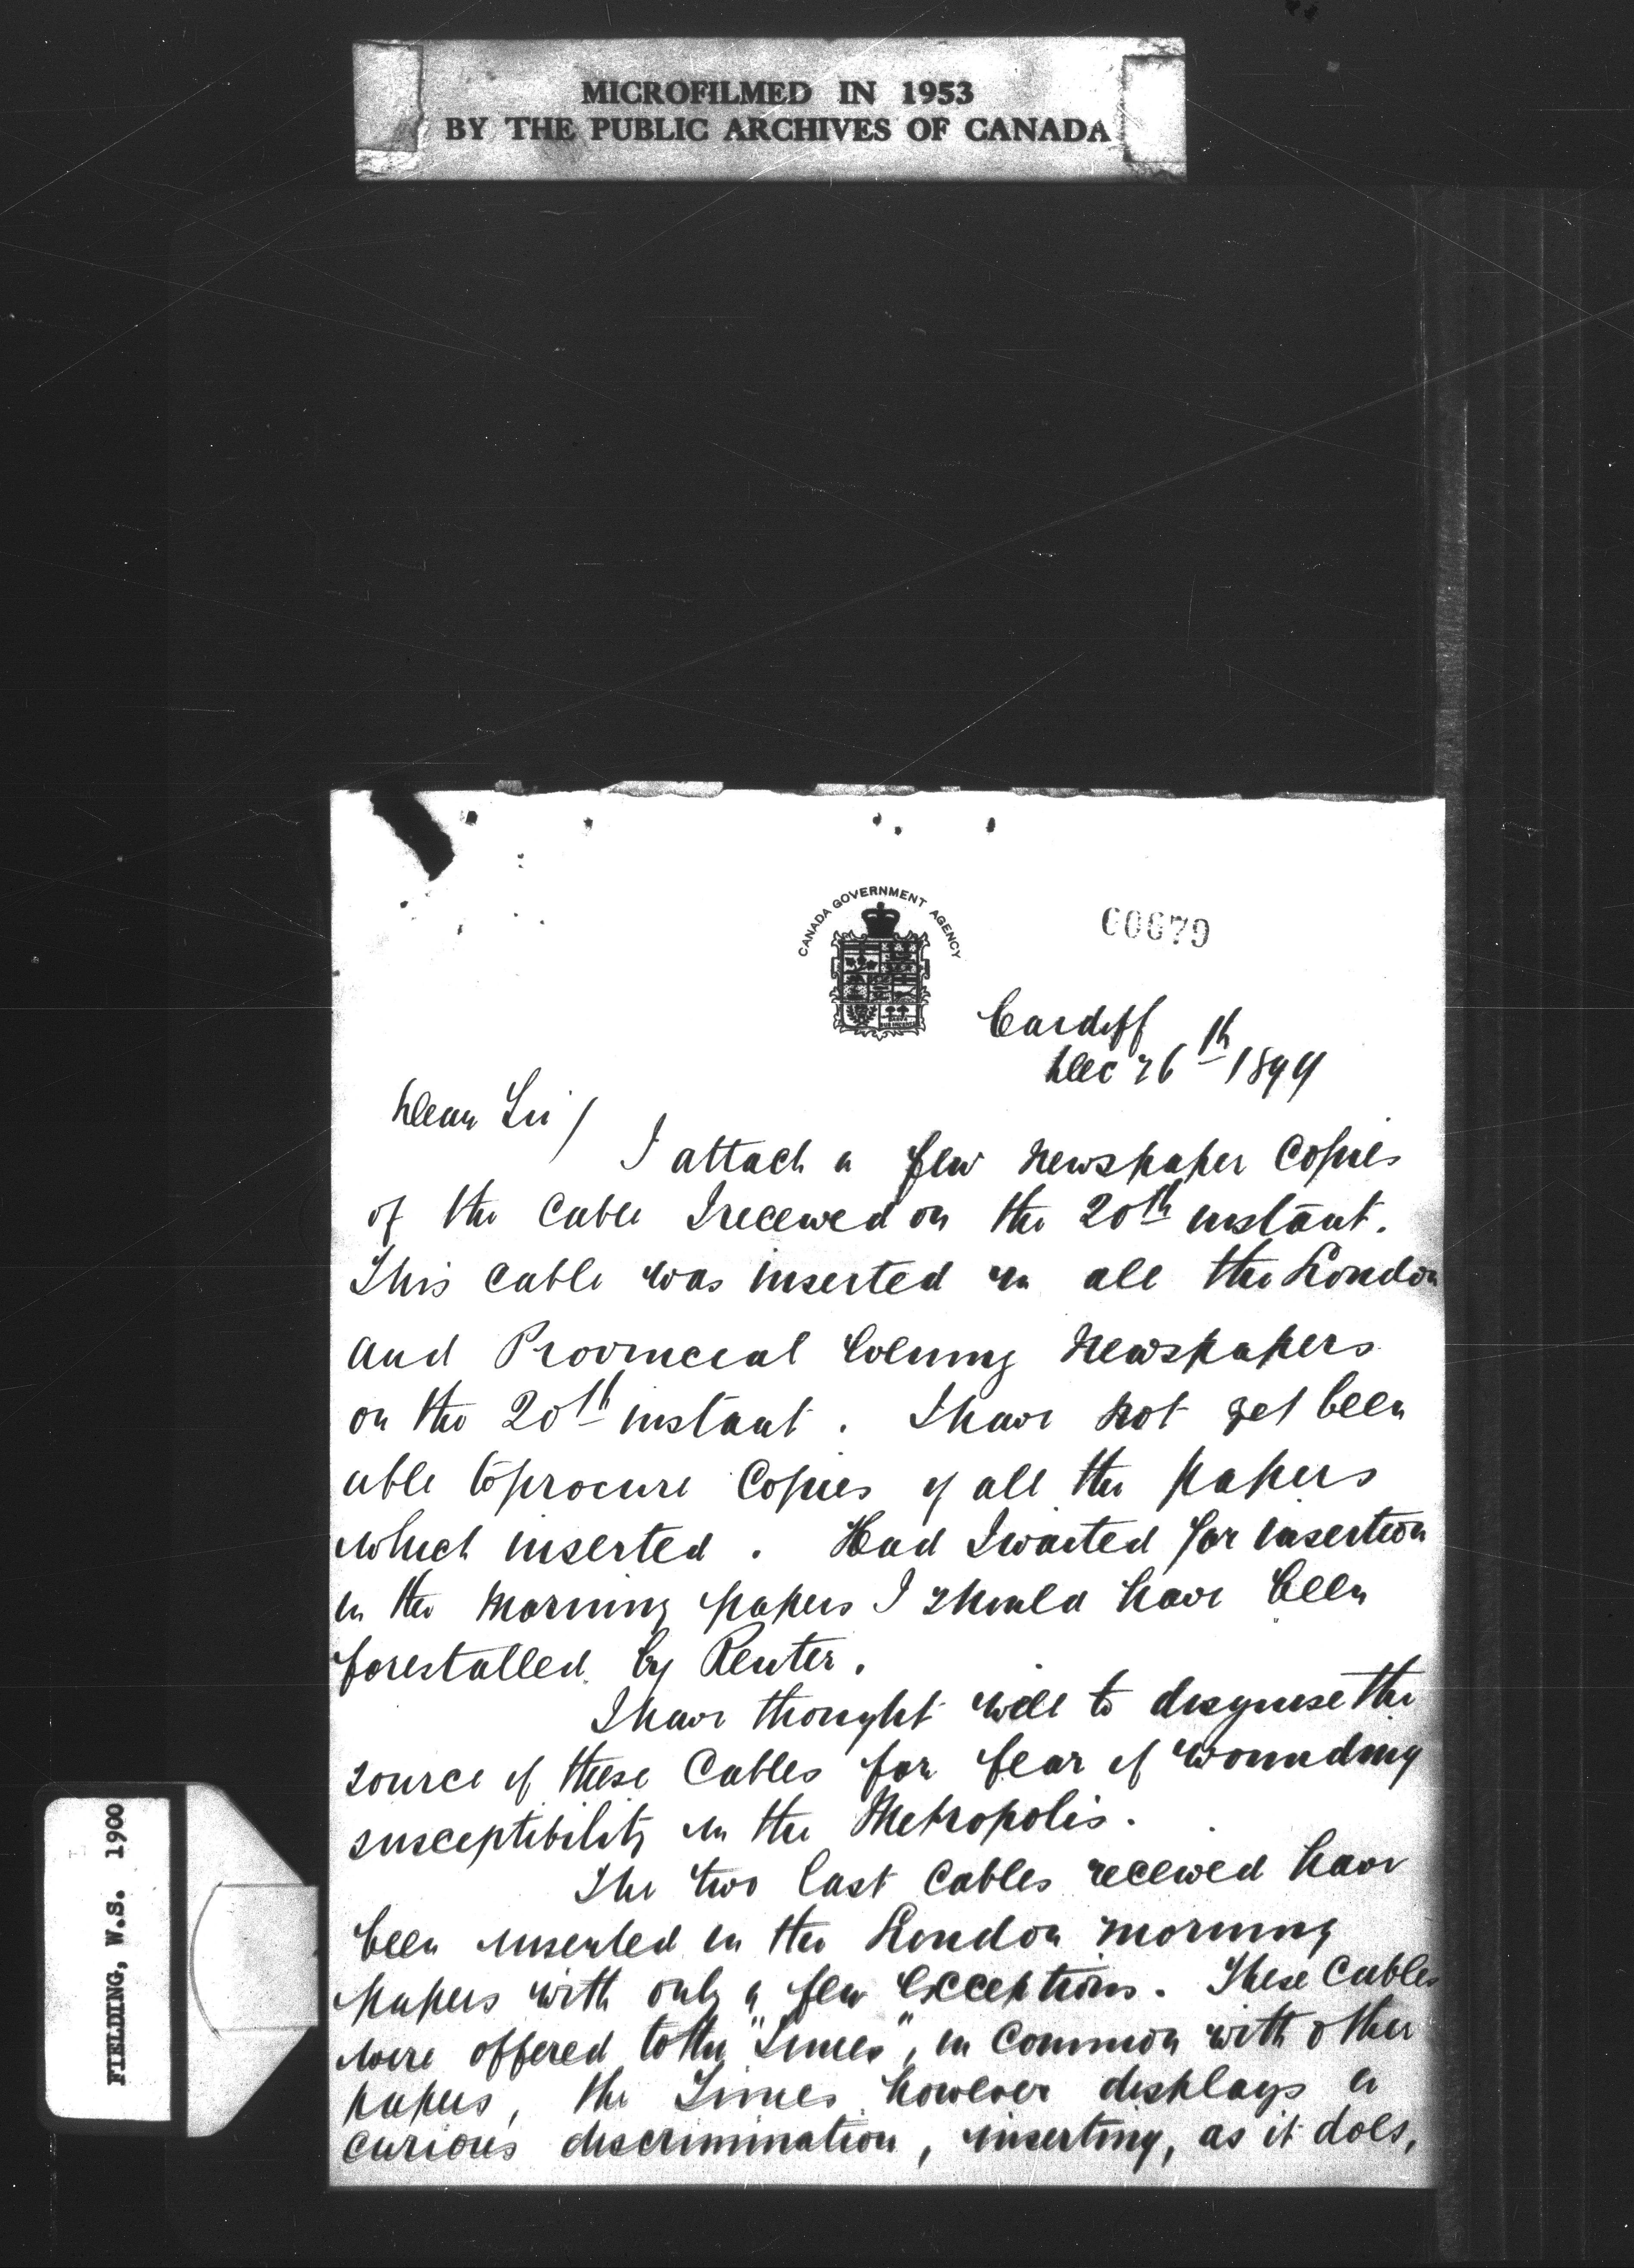 MICROFILMED IN 1953
BY THE PUBLIC ARCHIVES OF CANADA
CANADA GOVERNMENT AGENCY
60679
Cardiff
Dec 26th 1899
Dear Sir/
I attach a few Newspaper Copies
of the Cable I received on the 20th instant.
This Cable was inserted in all the London
and Provincial Evening Newspapers
on the 20th instant. I have not yet been
able to procure Copies of all the papers
which inserted. Had I waited for insertion
in the Morning papers I should have been
forestalled by Reuter.
I have thought well to disguise the
source of these Cables for fear of wounding
susceptibility in the Metropolis.
The two last Cables received have
been inserted in the London Morning
papers with only a few exceptions. These Cables
were offered to the "Times", in Common with other
papers, the Times however displays a
curious discrimination, inserting, as it does,
FIELDING, W.S. 1900